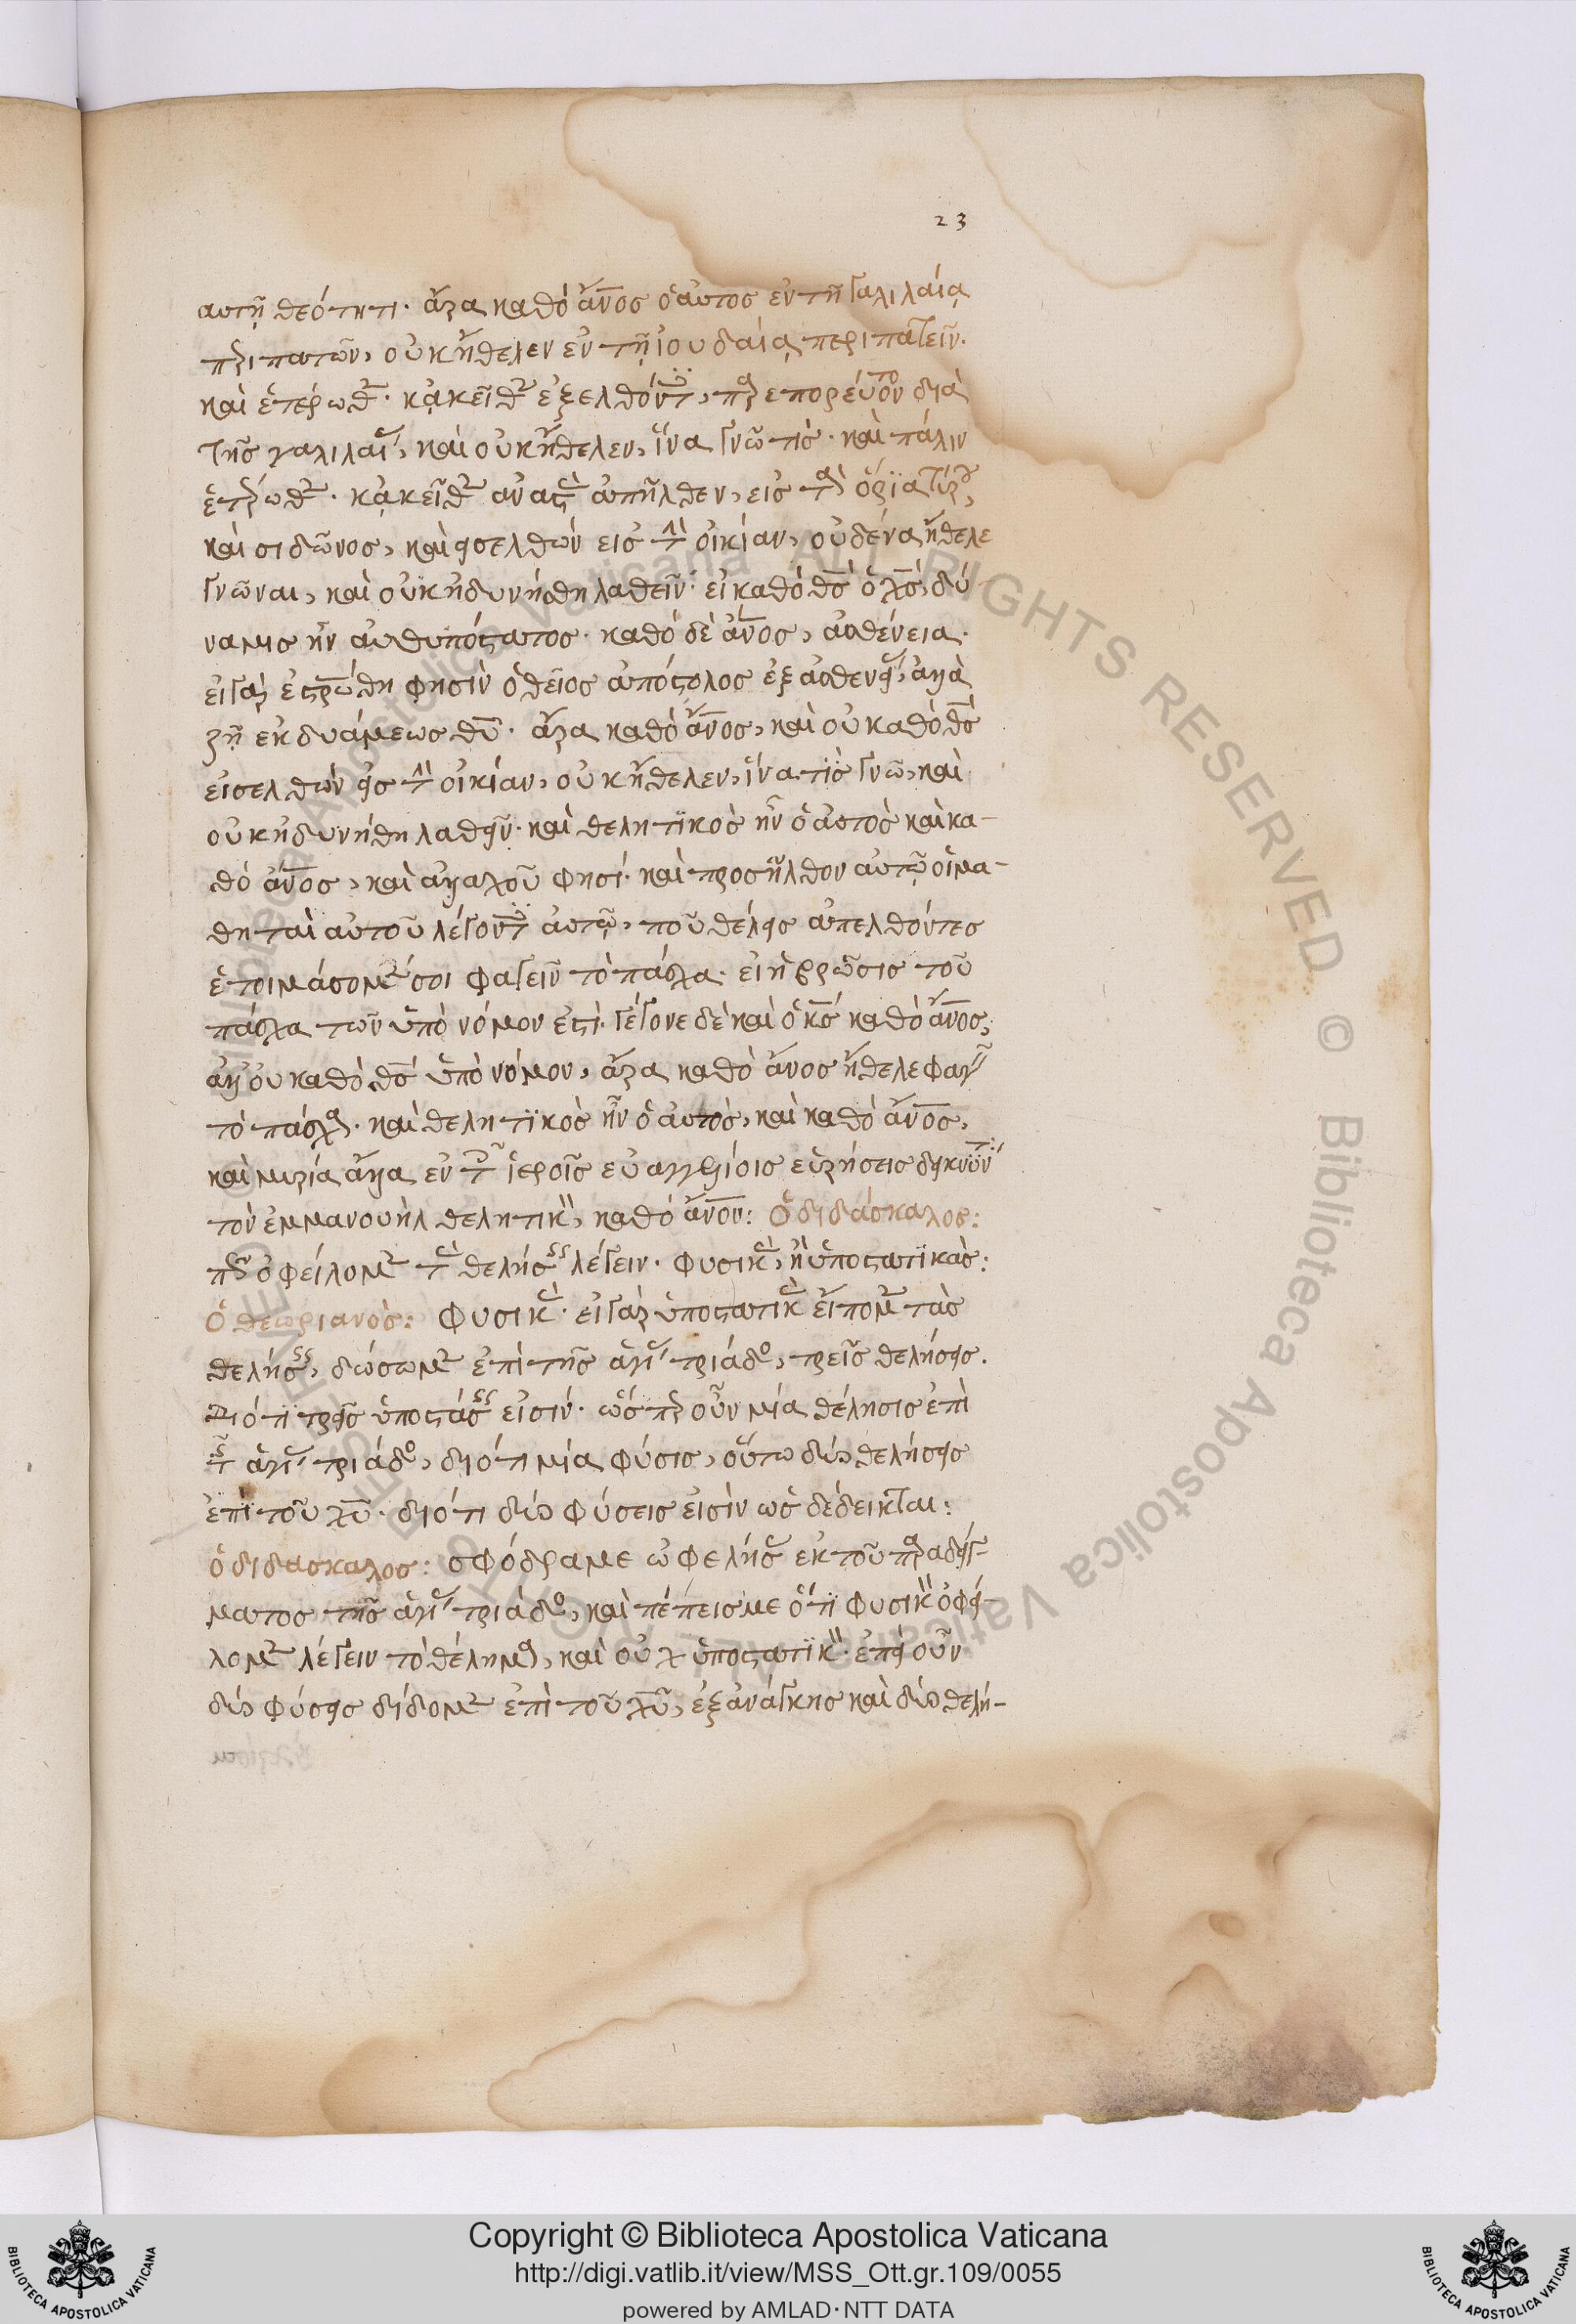 23
αυτῆ θεότητι· ἄρα καθὸ ἄνος ὁ αὐτος ἐν τῆ Γαλιλαία
πριπατῶν, οὐκ ἤθελεν ἐν τῆ ἰουδαία περιπατεῖν.
καὶ ἑτέρωθ· κἀκεῖθ ἐξελθόντ, πρεπορεύοντο διὰ
τῆς γαλιλαί, καὶ οὐκ ἤθελεν, ἵνα γνῶ τὶς· καὶ πάλιν
ἑτρωθ· κἀκεῖθ ἀναστὰ ἀπῆλθεν, εἰς τὰ ὅρϊα τύρ,
καὶ σιδῶνος, καὶ εἰσελθὼν εἰς τὴ οἰκίαν, οὐδένα ἤθελε
γνῶναι, καὶ οὐκ ἠδυνήθη λαθεῖν· εἰ καθὸ θς ὁ χς, δύ
ναμις ἦν αὐθυπόστατος· καθὸ δὲ ἄνος, ἀσθένεια·
εἰ γὰρ ἐστρώθη φησὶν ὁ θεῖος ἀπόστολος ἐξ ἀσθενεί, ἀλλὰ
ζῆ ἐκ δυάμεως θυ· ἄρα καθὸ ἄνος, καὶ οὐ καθὸ θς
εἰσελθὼν εἰς τὴ οἰκίαν, οὐκ ἤθελεν, ἵνα τὶς γνῶ, καὶ
οὐκ ἠδυνήθη λαθεῖν· καὶ θελητϊκὸς ἦν ὁ αὐτὸς καὶ κα-
θὸ ἄνος, καὶ ἀλλαχοῦ φησί· καὶ προσῆλθον αὐτῶ οἱ μα-
θηταὶ αὐτοῦ λέγοντ αὐτῶ, ποῦ θέλεις ἀπελθόντες
ἑτοιμάσομ σοι φαγεῖν τὸ πάσχα· εἰ ἡ βρῶσις τοῦ
πάσχα τῶν ὑπὸ νόμον ἐστί· γέγονε δὲ καὶ ὁ κς καθὸ ἄνος,
ἀλλ' οὐ καθὸ θς ὑπὸ νόμον, ἄρα καθὸ ἄνος ἤθελε φαγ
τὸ πάσχα· καὶ θελητϊκὸς ἦν ὁ αὐτὸς, καὶ καθὸ ἄνος,
καὶ μυρία ἄλλα ἐν τ ἱεροῖς εὐαγγελίοις εὑρήσεις δεικνύντ
τὸν ἐμμανουὴλ θελητικ, καθὸ ἄνον: Ὁ διδάσκαλος:
π ὀφείλομ τὰ θελήσ λέγειν· φυσικὰ, ἢ ὑποστατϊκὰς:
Ὁ θεωριανὸς: Φυσικὰ· εἰ γὰρ ὑποστατικὰ εἴπομ τὰς
θελήσ, δώσωμ ἐπὶ τῆς ἁγί τριάδο, τρεῖς θελήσεις.
διότϊ τρεῖς ὑποστάσ εἰσίν· ὥσπρ οὖν μία θέλησις ἐπὶ
τ ἁγί τριάδο, διότι μία φύσις, οὕτω δύο θελήσεις
ἐπὶ τοῦ χυ· διότι δύο φύσεις εἰσὶν ὡς δέδεικται:
ὁ διδασκαλος: σφόδρα με ὠφελήσ ἐκ τοῦ πραδείγ-
ματος τῆς ἁγί τριάδο, καὶ πέπεισμε ὅτϊ φυσικ ὀφεί-
λομ λέγειν τὸ θέλημα, καὶ οὐχ ὑποστατϊκ· ἐπεὶ οὖν
δύο φύσεις δίδομ ἐπὶ τοῦ χυ, ἐξ ἀνάγκης καὶ δύο θελή-
Copyright © Biblioteca Apostolica Vaticana
http://digi.vatlib.it/view/MSS_Ott.gr.109/0055
powered by AMLAD·NTT DATA